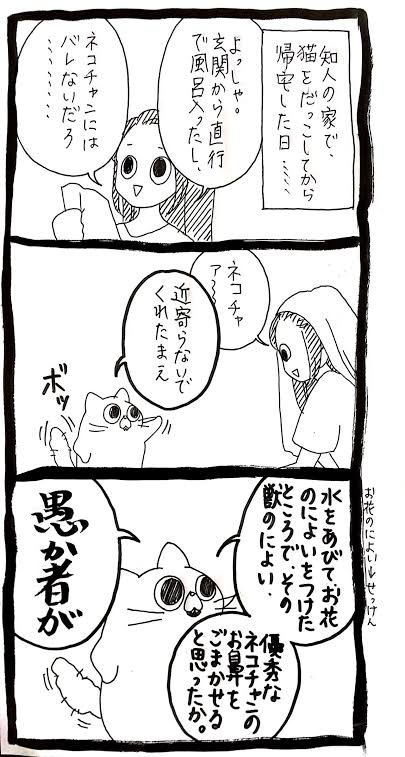 知人の家で、
猫をだっこしてから
帰宅した日……
よっしゃ。
玄関から直行
で風呂入ったし、
ネコチャンには
バレないだろ
……
ネコチャ
ア〜〜
近寄らないで
くれたまえ
ボッ
水をあびてお花
のによいをつけた
ところで、その
獣のによい、
優秀な
ネコチャンの
お鼻を
ごまかせる
と思ったか。
愚か者が
お花のによい↓せっけん